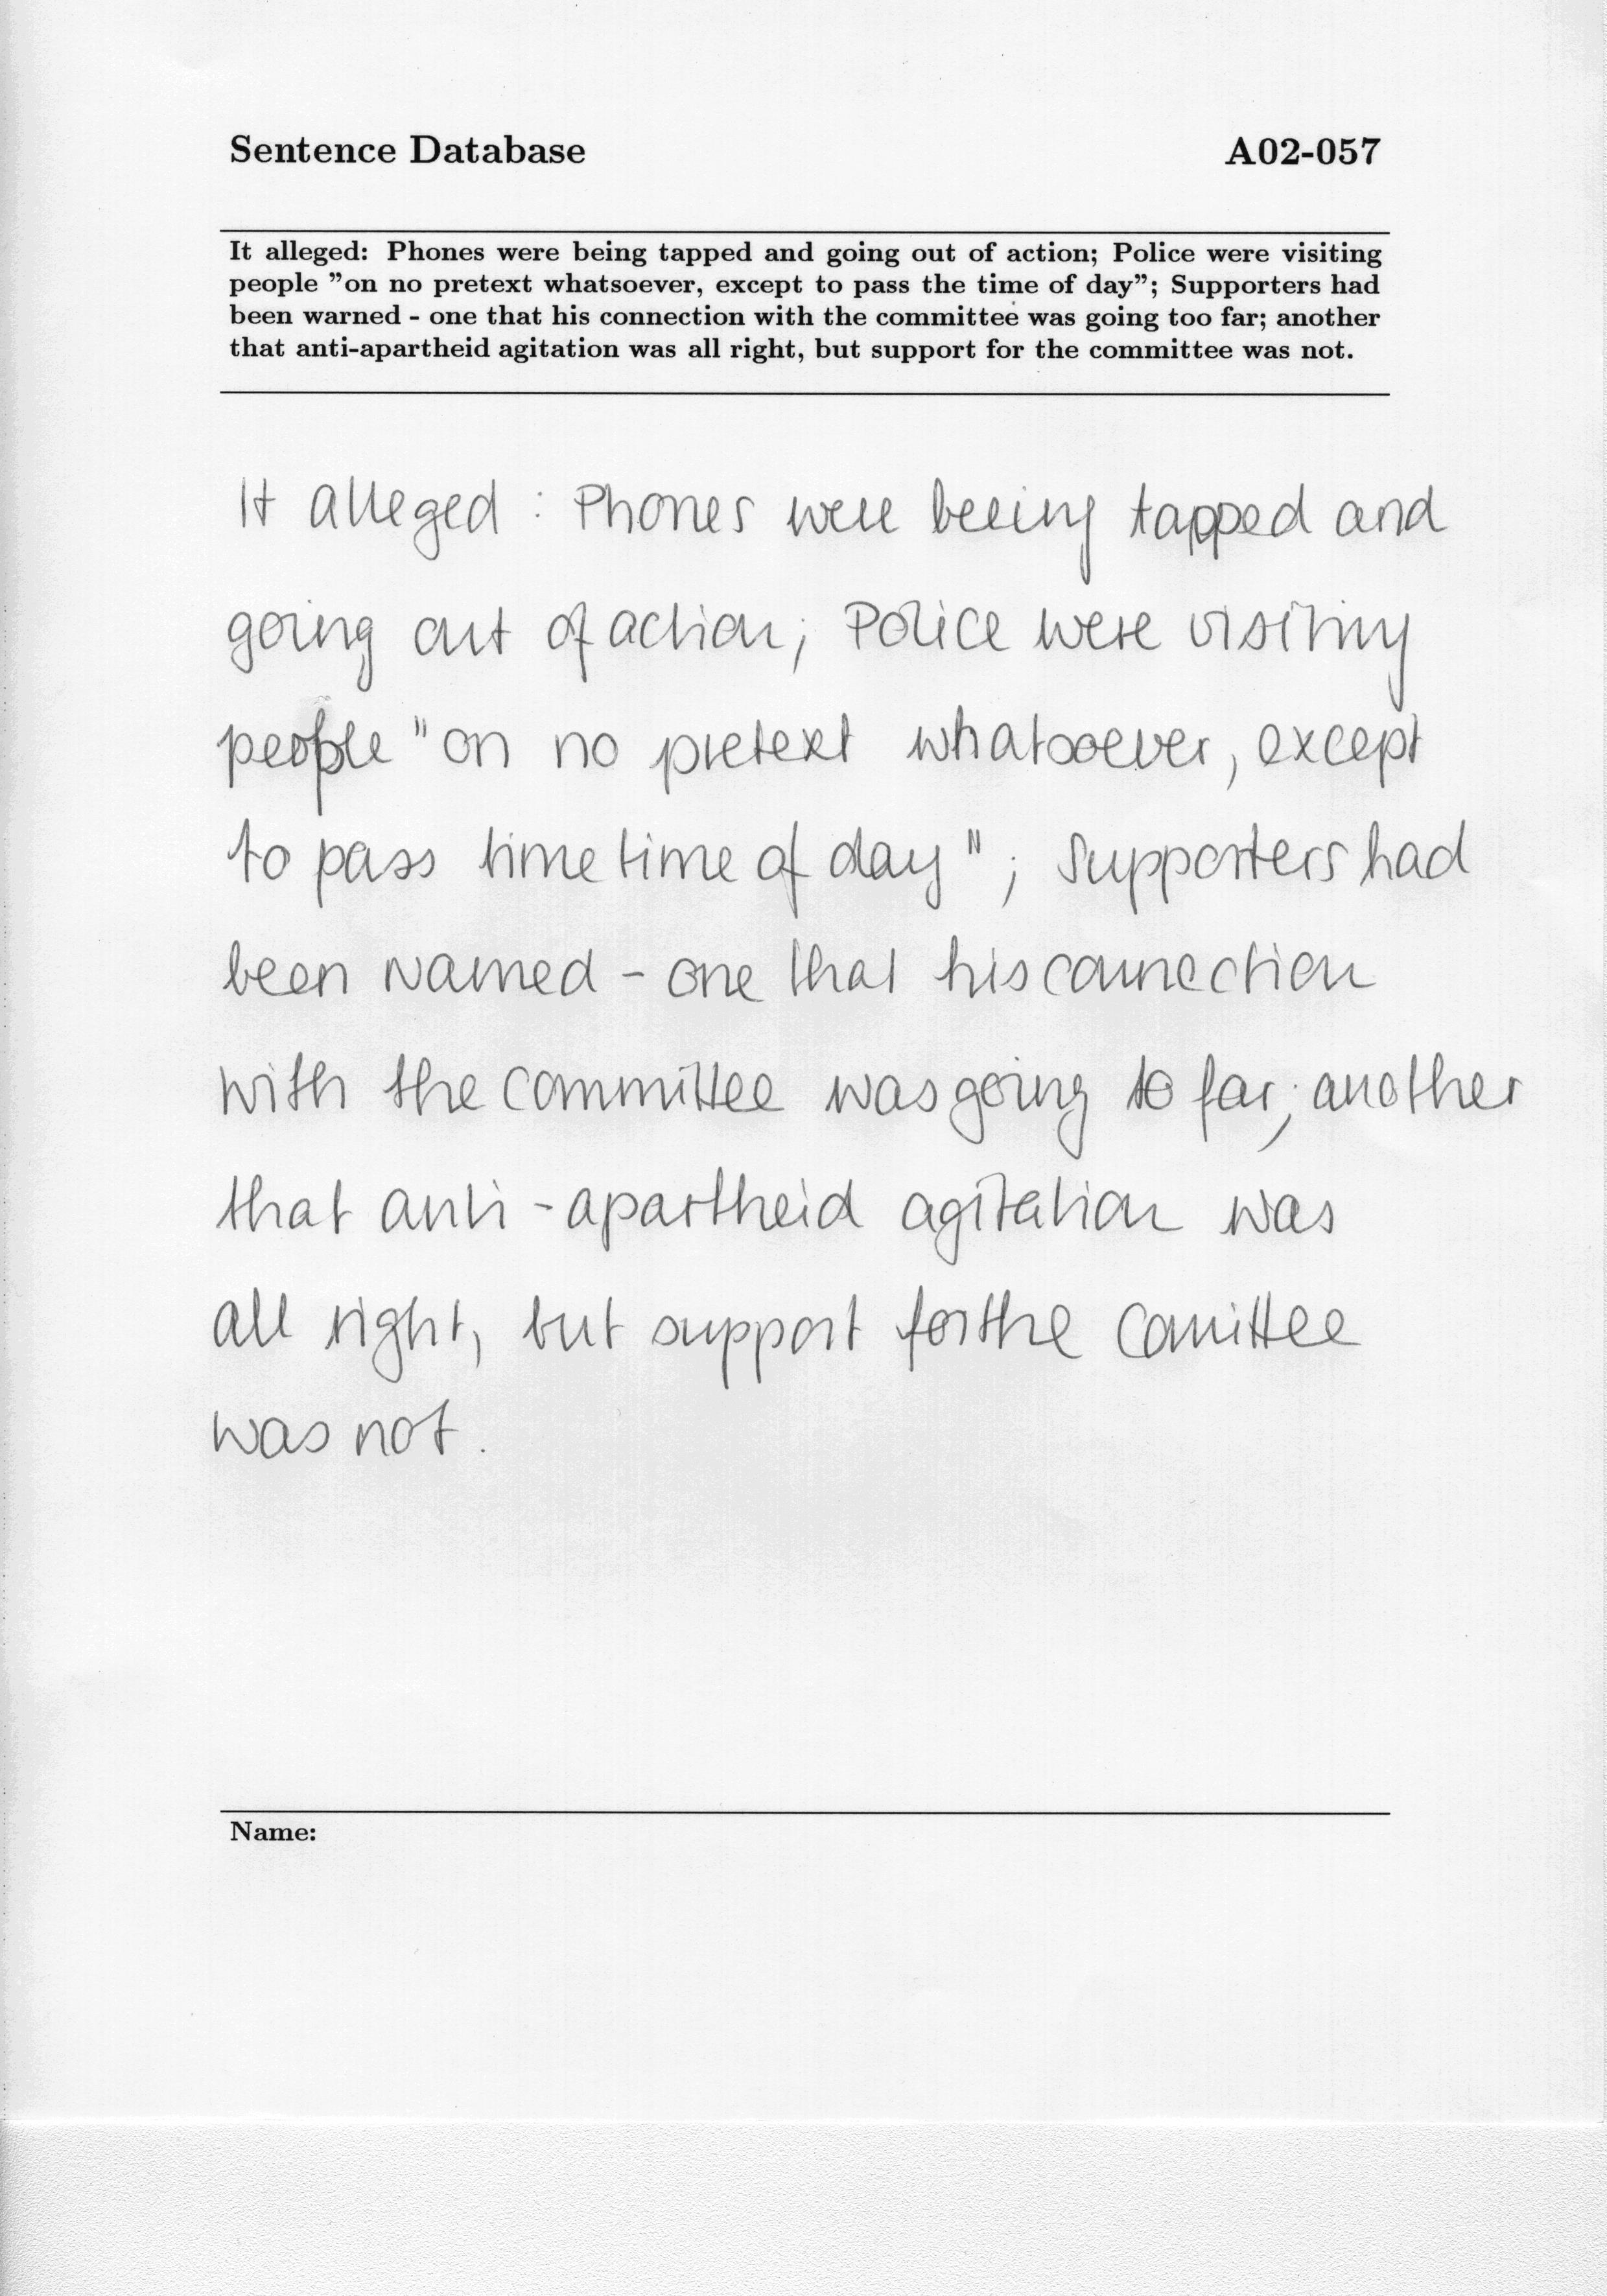 Sentence Database A02-057
It alleged: Phones were being tapped and going out of action; Police were visiting
people "on no pretext whatsoever, except to pass the time of day"; Supporters had
been warned - one that his connection with the committee was going too far; another
that anti-apartheid agitation was all right, but support for the committee was not.
It alleged : Phones were beeing tapped and
going out of action; Police were visiting
people "on no pretext whatsoever, except
to pass time time of day"; Supporters had
been warned - one that his connection
with the committee was going to far; another
that anti-apartheid agitation was
all right, but support for the comittee
was not.
Name: